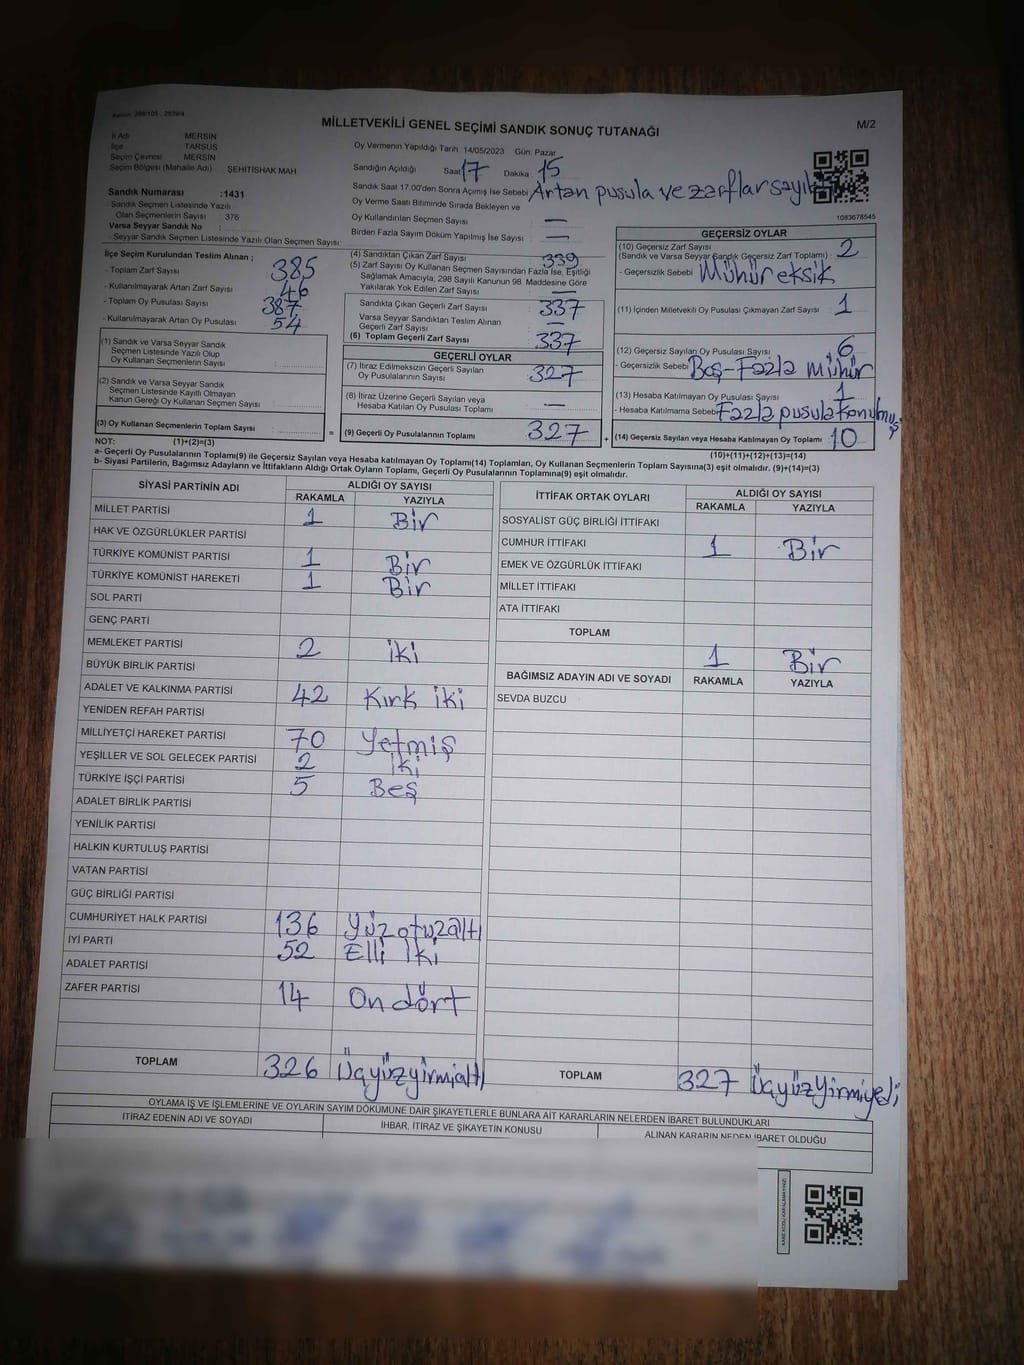 MİLLETVEKİLİ GENEL SEÇİMİ SANDIK SONUÇ TUTANAĞI
M/2
İl Adı MERSIN
İlçe TARSUS
Seçim Çevresi MERSIN
Seçim Bölgesi (Mahalle Adı) ŞEHİTISHAK MAH
Oy Vermenin Yapıldığı Tarih :14/05/2023 Gün: Pazar
Sandığın Açıldığı Saat 17 Dakika 15
Sandık Saat 17.00'den Sonra Açılmış İse Sebebi Artan pusula ve zarflar
Oy Verme Saati Bitiminde Sırada Bekleyen ve
Oy Kullandırılan Seçmen Sayısı —
Birden Fazla Sayım Döküm Yapılmış İse Sayısı —
1083678545
Sandık Numarası :1431
Sandık Seçmen Listesinde Yazılı
Olan Seçmenlerin Sayısı 376
Varsa Seyyar Sandık No :
Seyyar Sandık Seçmen Listesinde Yazılı Olan Seçmen Sayısı:
İlçe Seçim Kurulundan Teslim Alınan ;
- Toplam Zarf Sayısı : 385
- Kullanılmayarak Artan Zarf Sayısı : 46
- Toplam Oy Pusulası Sayısı : 387
- Kullanılmayarak Artan Oy Pusulası : 54
(1) Sandık ve Varsa Seyyar Sandık
Seçmen Listesinde Yazılı Olup
Oy Kullanan Seçmenlerin Sayısı :
(2) Sandık ve Varsa Seyyar Sandık
Seçmen Listesinde Kayıtlı Olmayan
Kanun Gereği Oy Kullanan Seçmen Sayısı :
(3) Oy Kullanan Seçmenlerin Toplam Sayısı :
(4) Sandıktan Çıkan Zarf Sayısı : 339
(5) Zarf Sayısı Oy Kullanan Seçmen Sayısından Fazla İse, Eşitliği
Sağlamak Amacıyla, 298 Sayılı Kanunun 98. Maddesine Göre
Yakılarak Yok Edilen Zarf Sayısı : —
Sandıkta Çıkan Geçerli Zarf Sayısı : 337
Varsa Seyyar Sandıktan Teslim Alınan
Geçerli Zarf Sayısı : —
(6) Toplam Geçerli Zarf Sayısı : 337
GEÇERLİ OYLAR
(7) İtiraz Edilmeksizin Geçerli Sayılan
Oy Pusulalarının Sayısı : 327
(8) İtiraz Üzerine Geçerli Sayılan veya
Hesaba Katılan Oy Pusulası Toplamı : —
= (9) Geçerli Oy Pusulalarının Toplamı : 327 +
GEÇERSİZ OYLAR
(10) Geçersiz Zarf Sayısı
(Sandık ve Varsa Seyyar Sandık Geçersiz Zarf Toplamı) : 2
- Geçersizlik Sebebi : Mühür eksik
(11) İçinden Milletvekili Oy Pusulası Çıkmayan Zarf Sayısı : 1
(12) Geçersiz Sayılan Oy Pusulası Sayısı : 6
- Geçersizlik Sebebi : Boş-Fazla mühür
(13) Hesaba Katılmayan Oy Pusulası Sayısı : 1
- Hesaba Katılmama Sebebi : Fazla pusula konulmuş
(14) Geçersiz Sayılan veya Hesaba Katılmayan Oy Toplamı : 10
NOT: (1)+(2)=(3)
(10)+(11)+(12)+(13)=(14)
a- Geçerli Oy Pusulaları Toplamı(9) ile Geçersiz Sayılan veya Hesaba Katılmayan Oy Toplamı(14) Toplamları, Oy Kullanan Seçmenlerin Toplam Sayısına(3) eşit olmalıdır. (9)+(14)=(3)
b- Siyasi Partilerin, Bağımsız Adayların ve İttifakların Aldığı Ortak Oyların Toplamı, Geçerli Oy Pusulalarının Toplamına(9) eşit olmalıdır.
SİYASİ PARTİNİN ADI
ALDIĞI OY SAYISI
RAKAMLA YAZIYLA
MİLLET PARTİSİ 1 Bir
HAK VE ÖZGÜRLÜKLER PARTİSİ
TÜRKİYE KOMÜNİST PARTİSİ 1 Bir
TÜRKİYE KOMÜNİST HAREKETİ 1 Bir
SOL PARTİ
GENÇ PARTİ
MEMLEKET PARTİSİ 2 iki
BÜYÜK BİRLİK PARTİSİ
ADALET VE KALKINMA PARTİSİ 42 Kırk iki
YENİDEN REFAH PARTİSİ
MİLLİYETÇİ HAREKET PARTİSİ 70 Yetmiş
YEŞİLLER VE SOL GELECEK PARTİSİ 2 iki
TÜRKİYE İŞÇİ PARTİSİ 5 Beş
ADALET BİRLİK PARTİSİ
YENİLİK PARTİSİ
HALKIN KURTULUŞ PARTİSİ
VATAN PARTİSİ
GÜÇ BİRLİĞİ PARTİSİ
CUMHURİYET HALK PARTİSİ 136 Yüz otuzaltı
İYİ PARTİ 52 Elli iki
ADALET PARTİSİ
ZAFER PARTİSİ 14 On dört
TOPLAM 326 Üçyüzyirmialtı
İTTİFAK ORTAK OYLARI
ALDIĞI OY SAYISI
RAKAMLA YAZIYLA
SOSYALIST GÜÇ BİRLİĞİ İTTİFAKI
CUMHUR İTTİFAKI 1 Bir
EMEK VE ÖZGÜRLÜK İTTİFAKI
MİLLET İTTİFAKI
ATA İTTİFAKI
TOPLAM 1 Bir
BAĞIMSIZ ADAYIN ADI VE SOYADI RAKAMLA YAZIYLA
SEVDA BUZCU
TOPLAM 327 Üçyüzyirmiyedi
OYLAMA İŞ VE İŞLEMLERİNE VE OYLARIN SAYIM DÖKÜMÜNE DAİR ŞİKAYETLERLE BUNLARA AİT KARARLARIN NELERDEN İBARET BULUNDUKLARI
İTİRAZ EDENİN ADI VE SOYADI
İHBAR, İTİRAZ VE ŞİKAYETİN KONUSU
ALINAN KARARIN NEDEN İBARET OLDUĞU